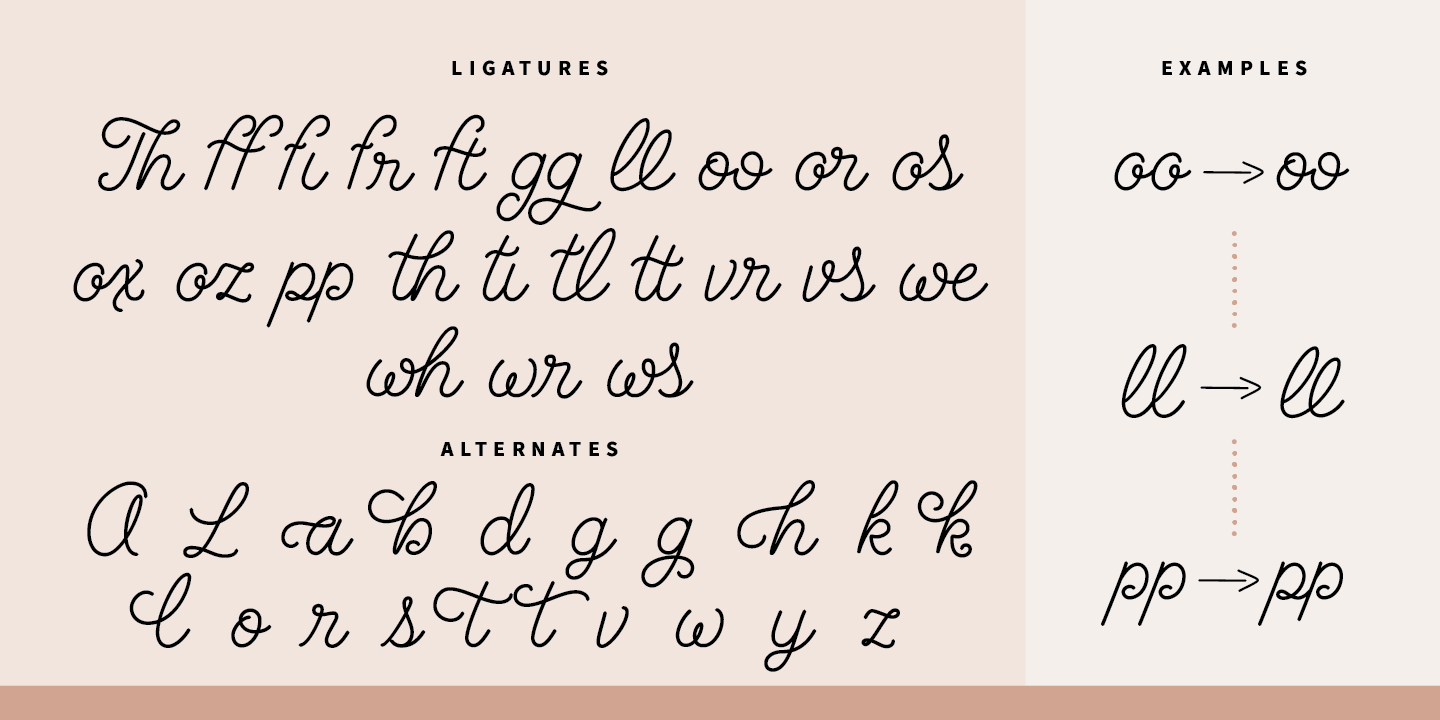 LIGATURES
Th ff fi fr ft gg ll oo or os
ox oz pp th ti tl tt vr vs we
wh wr ws
ALTERNATES
A L a b d g g h k k
l o r s t t v w y z
EXAMPLES
oo → oo
ll → ll
pp → pp